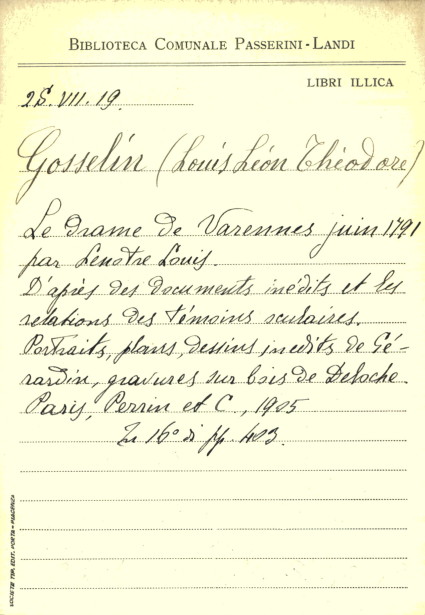 BIBLIOTECA COMUNALE PASSERINI-LANDI
LIBRI ILLICA
2S. VII. 19.
Gosselin (Louis Léon Théodore)
Le drame de Varennes juin 1791
par Lenotre Louis.
D'après des documents inédits et les
relations des témoins oculaires.
Portraits, plans, dessins inedits de Gé-
rardin, gravures sur bois de Deloche.
Paris, Perrin et C., 1905
In 16° di pp. 403.
SOCIETÀ TIP. EDIT. PORTA - PIACENZA